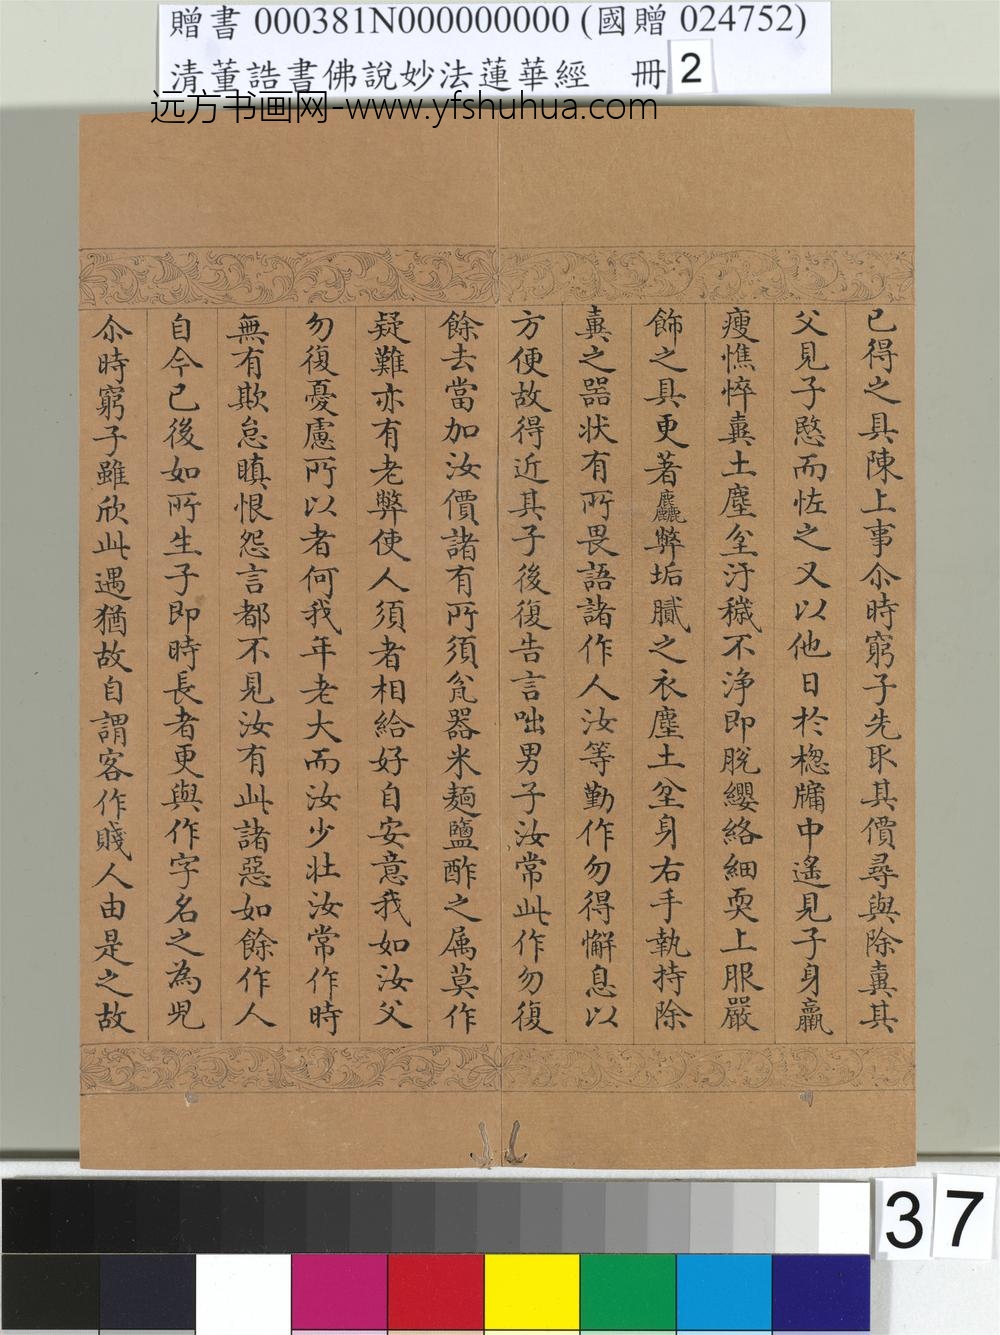 贈書 000381N000000000 (國贈 024752)
清董誥書佛說妙法蓮華經 冊 2
远方书画网-www.yfshuhua.com
已得之具陳上事尒時窮子先取其價尋與除糞其
父見子愍而恠之又以他日於牕牗中遙見子身羸
瘦憔悴糞土塵坌汙穢不淨即脫纓絡細耎上服嚴
飾之具更著麤弊垢膩之衣塵土坌身右手執持除
糞之器狀有所畏語諸作人汝等勤作勿得懈息以
方便故得近其子後復告言咄男子汝常此作勿復
餘去當加汝價諸有所須瓫器米麺鹽酢之属莫作
疑難亦有老弊使人須者相給好自安意我如汝父
勿復憂慮所以者何我年老大而汝少壯汝常作時
無有欺怠瞋恨怨言都不見汝有此諸惡如餘作人
自今已後如所生子即時長者更與作字名之為兒
尒時窮子雖欣此遇猶故自謂客作賤人由是之故
37